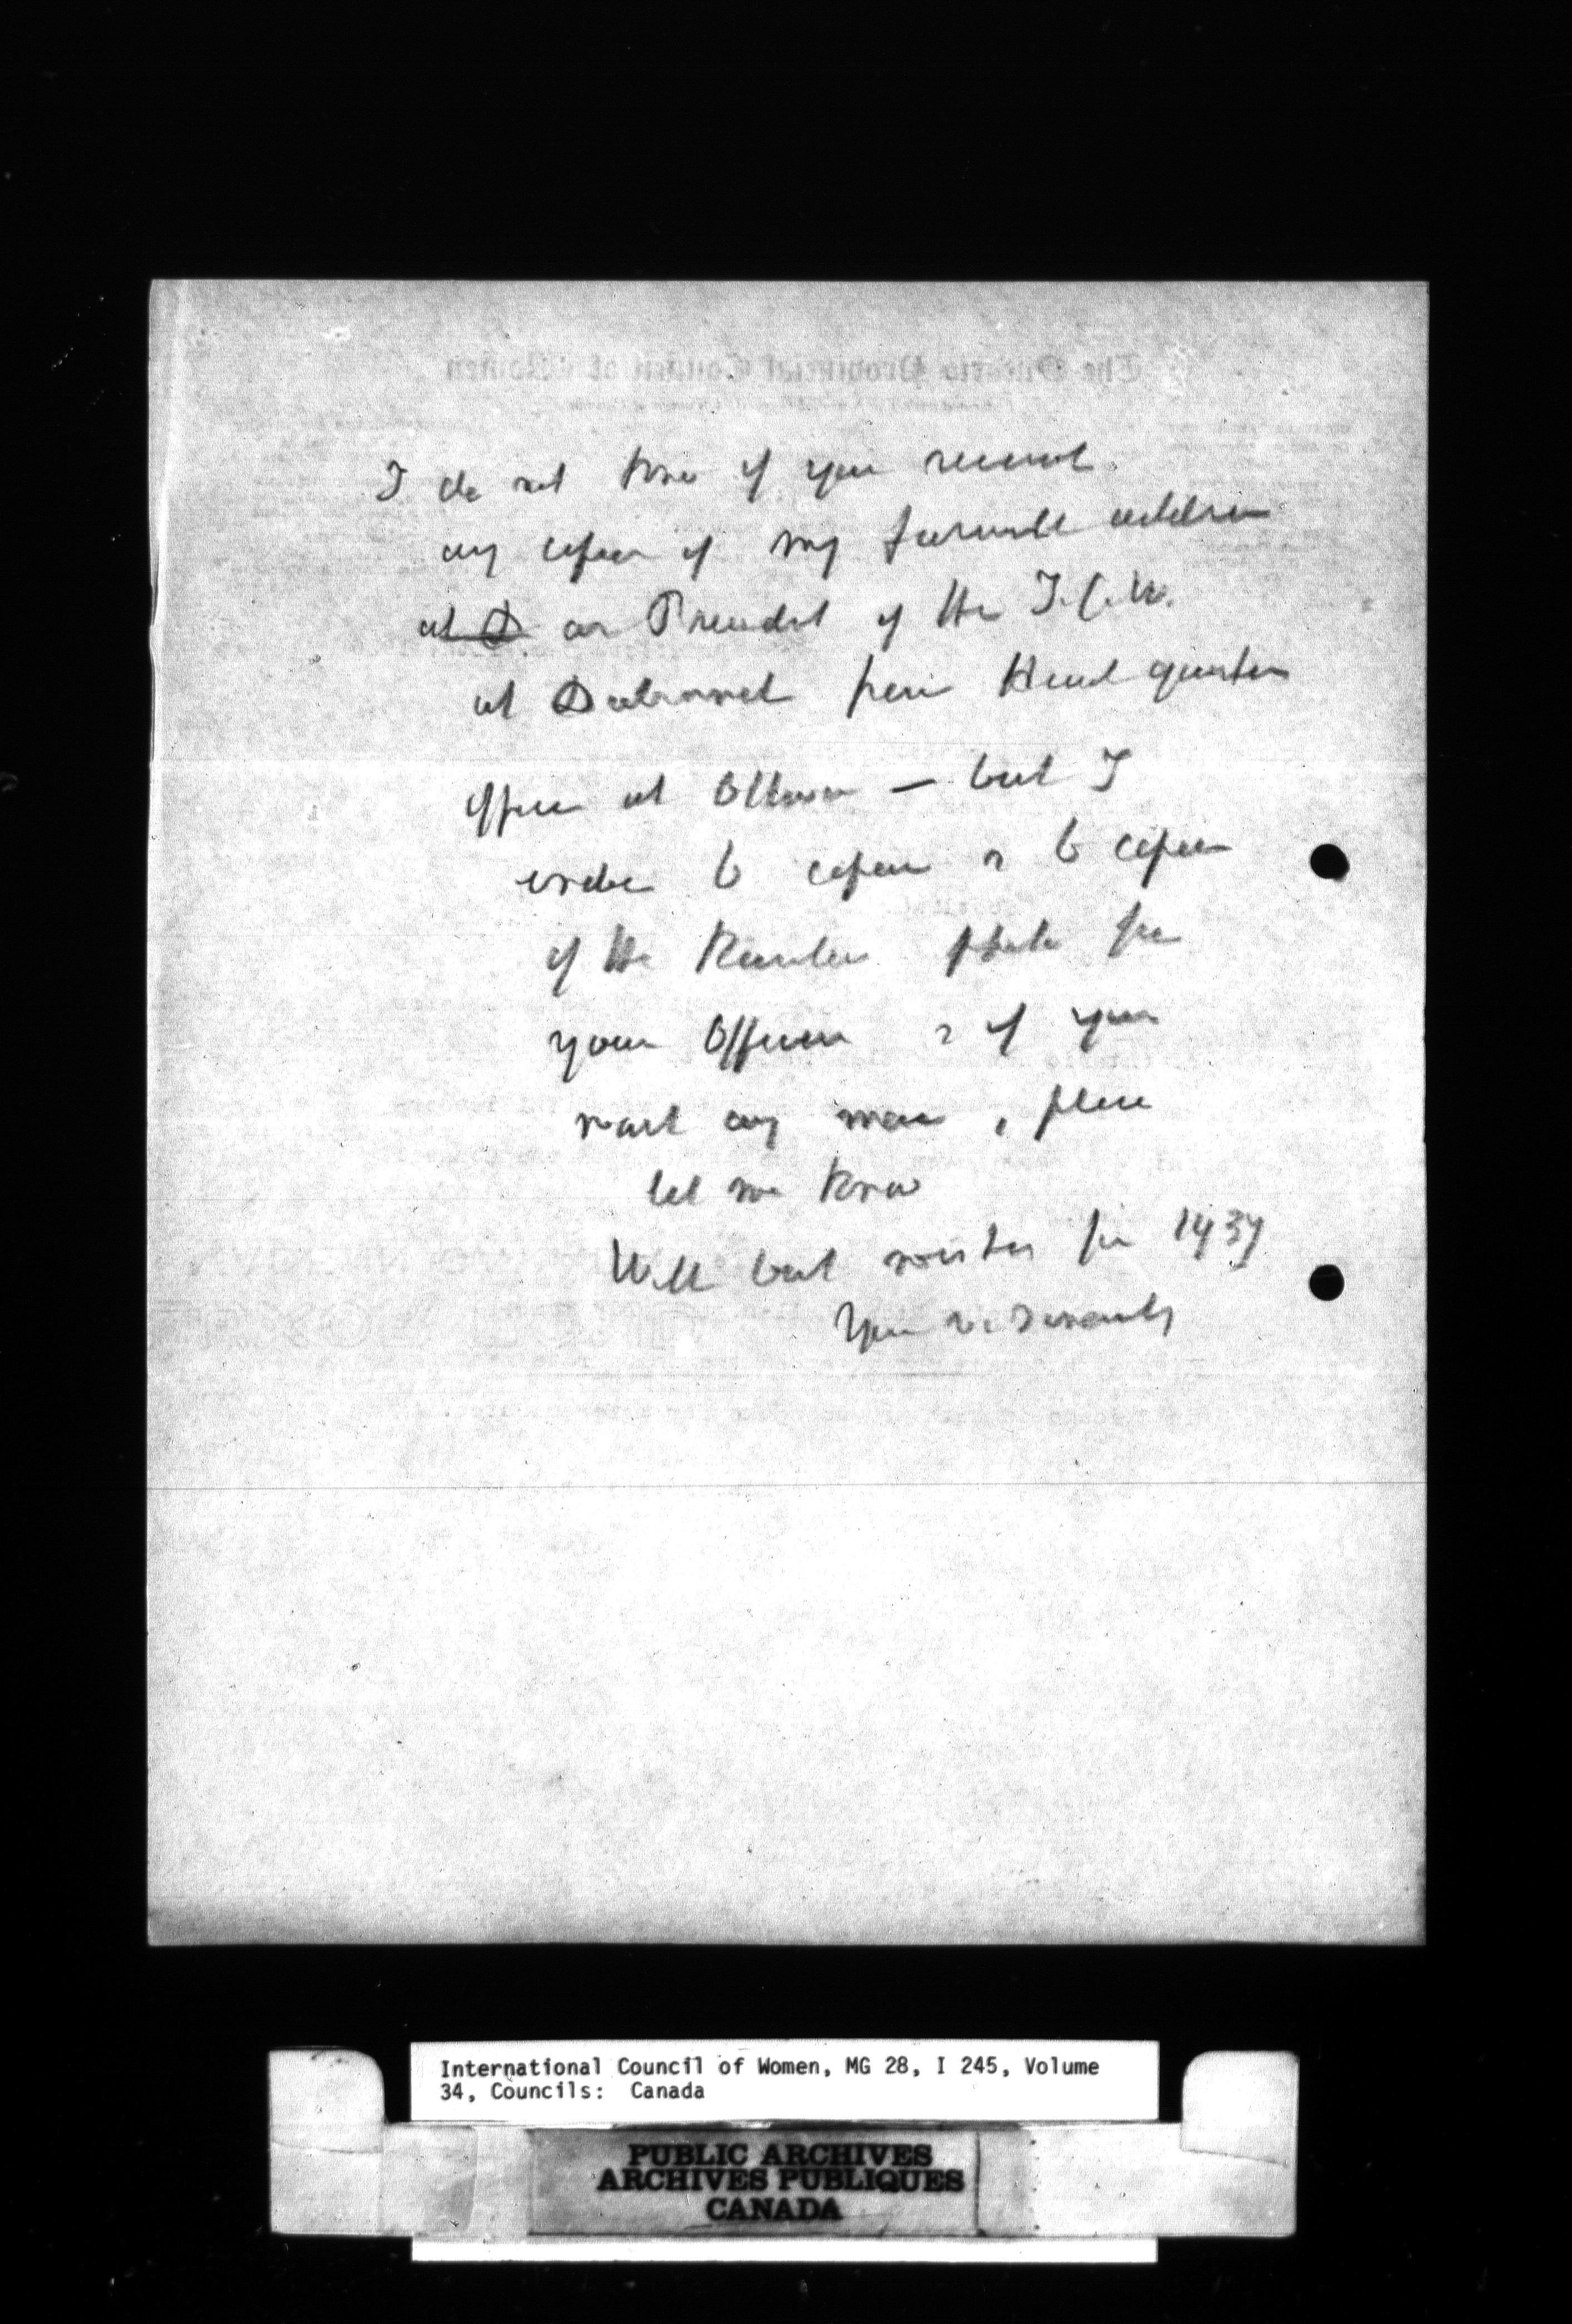 I do not know if you received
any copies of my farewell address
at D as President of the I.C.W.
at Dubrovnik from Head quarters
Office at Ottawa — but I
enclose 6 copies & 6 copies
of the
your Officers & if you
want any more, please
let me know
With best wishes for 1937
Yours v. sincerely
International Council of Women, MG 28, I 245, Volume
34, Councils: Canada
PUBLIC ARCHIVES
ARCHIVES PUBLIQUES
CANADA